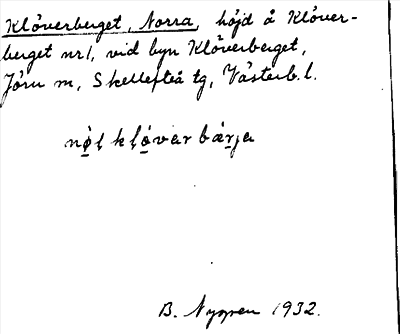 Klöverberget, Norra, höjd å Klöver-
berget nr 1, vid byn Klöverberget,
Jörn m, Skellefteå tg, Västerb. l.
nø̣ḷ kḷø̣var bæṛja
B. Nygren 1932.